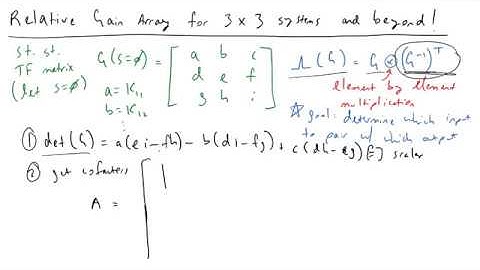 Relative Gain Array for 3 x 3 systems and beyond!
st. st.
TF matrix
(let s=ϕ)
G(s=ϕ) = [ a b c
d e f
g h i ]
a = K₁₁
b = K₁₂
⋮
Λ(G) = G ⊗ (G⁻¹)ᵀ
element by element
multiplication
☆ goal: determine which input
to pair w/ which output
① det(G) = a(ei-fh) - b(di-fg) + c(dh-eg) [=] scalar
② get cofactors
A = [